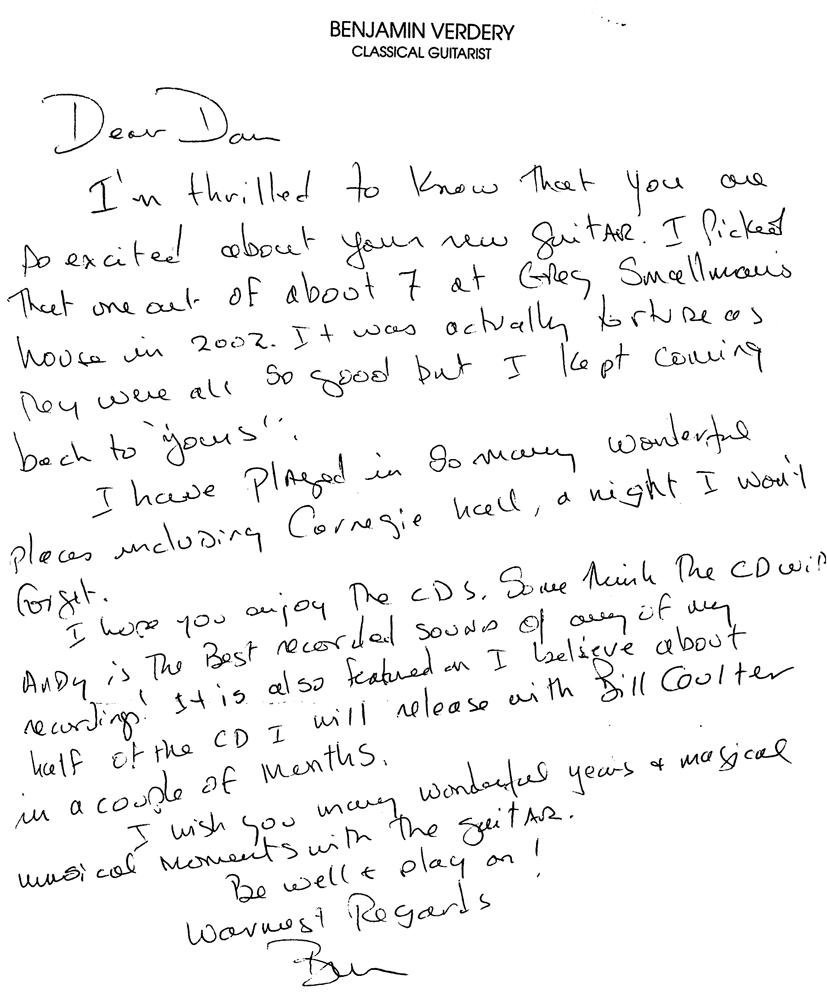 BENJAMIN VERDERY
CLASSICAL GUITARIST
Dear Dan
I'm thrilled to know that you are
so excited about your new guitar. I picked
that one out of about 7 at Greg Smallman's
house in 2002. It was actually torture as
they were all so good but I kept coming
back to "yours".
I have played in so many wonderful
places including Carnegie hall, a night I won't
forget.
I hope you enjoy the CDS. Some think the CD with
Andy is the Best recorded sound of any of my
recordings! It is also featured on I believe about
half of the CD I will release with Bill Coulter
in a couple of months.
I wish you many wonderful years + magical
musical moments with the guitar.
Be well + play on!
Warmest Regards
Ben